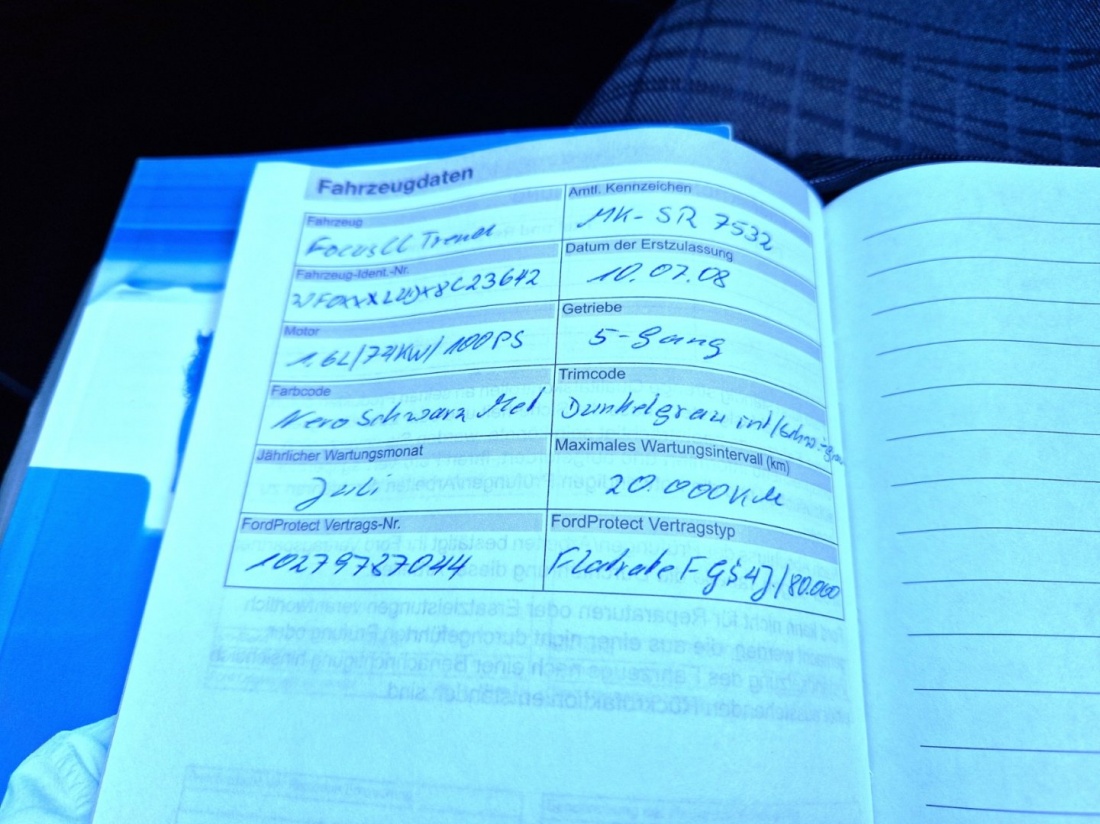 Fahrzeugdaten
Fahrzeug
Amtl. Kennzeichen
Focus CC Trend
MK-SR 7532
Fahrzeug-Ident.-Nr.
Datum der Erstzulassung
10.07.08
Motor
Getriebe
1.6L/74KW/100PS
5-Gang
Farbcode
Trimcode
Nero Schwarz Met
Dunkelgrau int/
Jährlicher Wartungsmonat
Maximales Wartungsintervall (km)
Juli
20.000KM
FordProtect Vertrags-Nr.
FordProtect Vertragstyp
10279787044
Flatrate FGS 4J/80.000